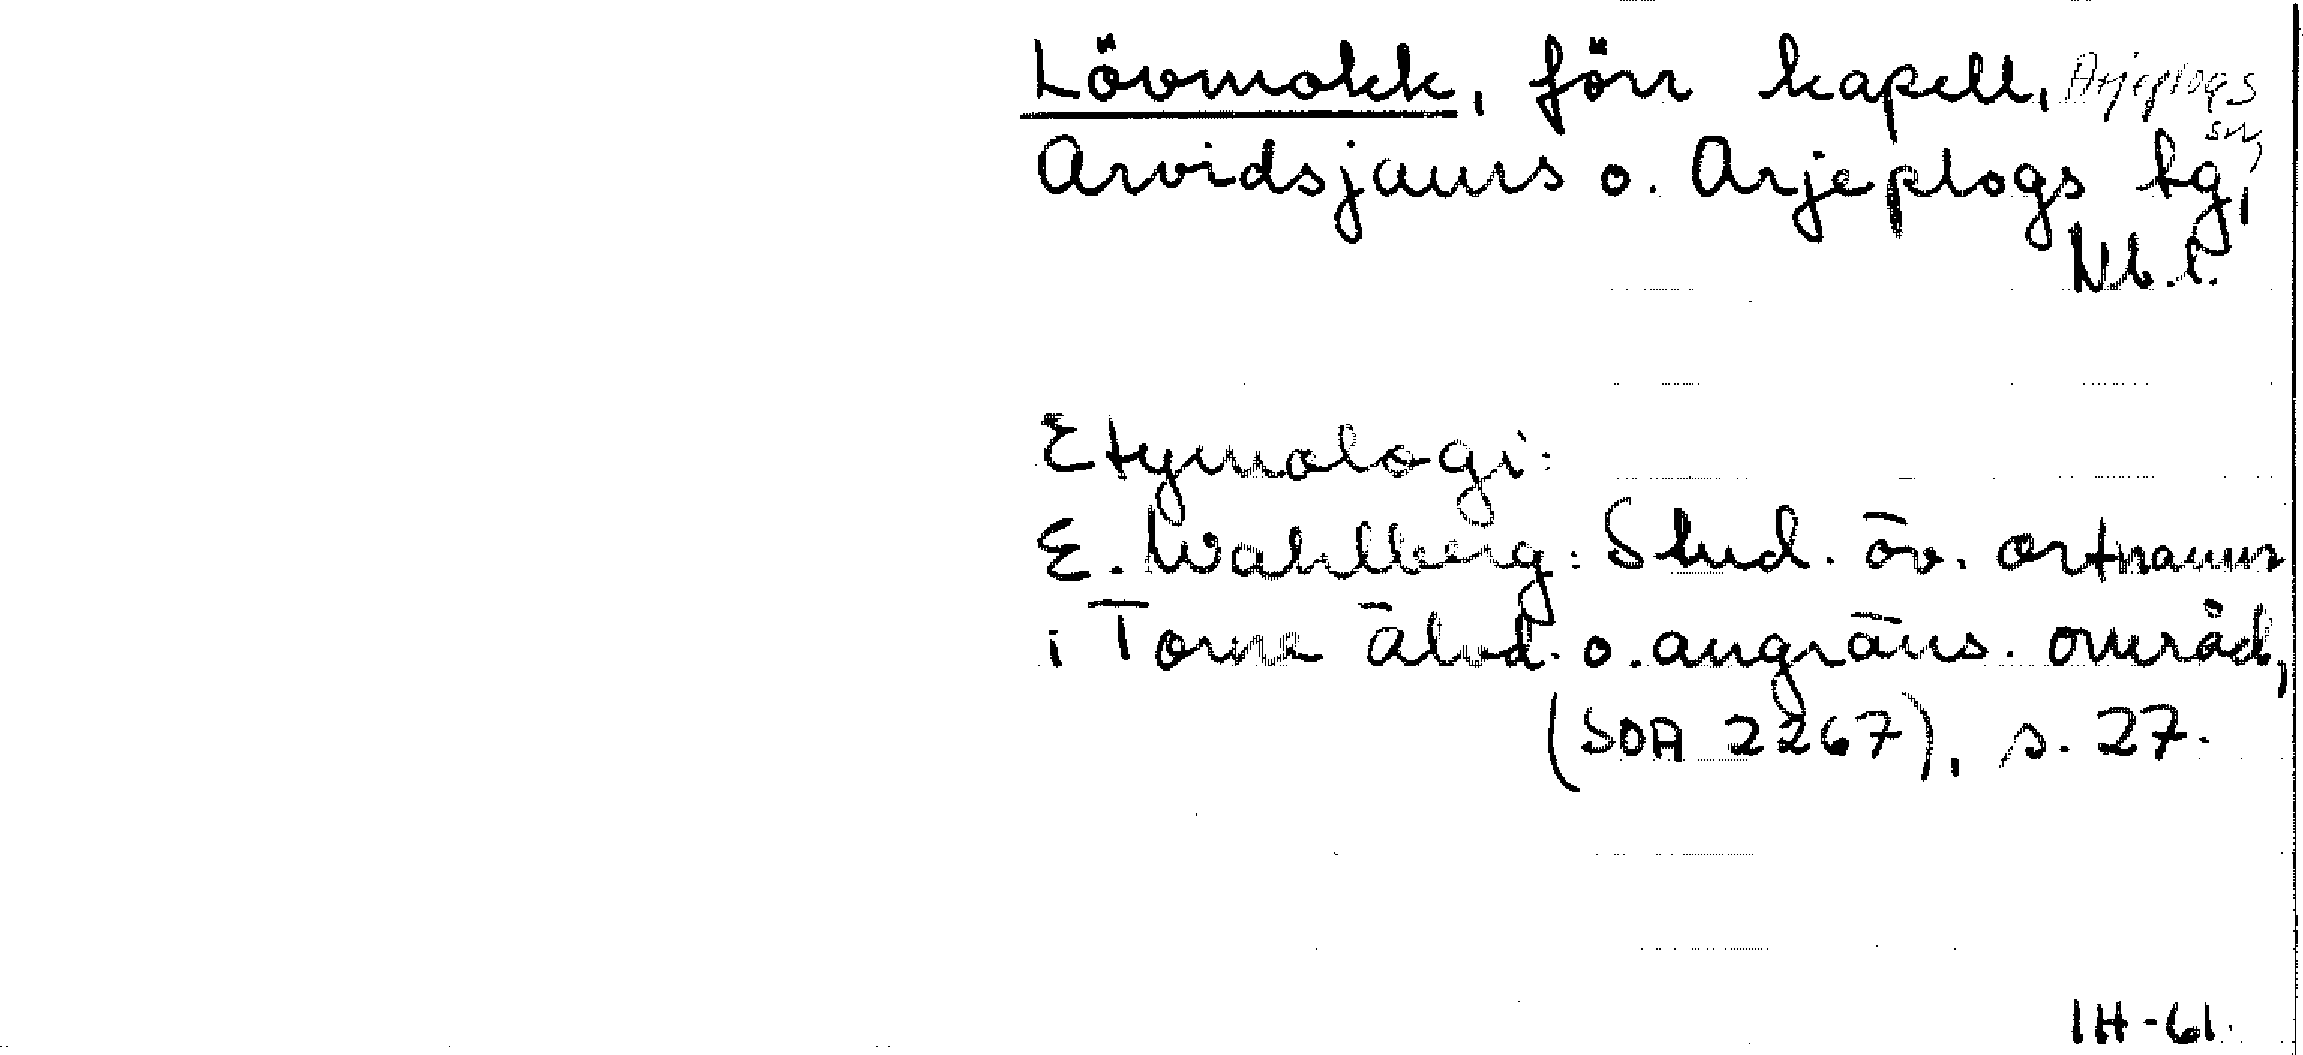 Lövmokk, förr kapell, Arjeplogs
sn,
Arvidsjaurs o. Arjeplogs tg,
Nb. l.
Etymologi:
E. Wahlberg: Stud. öv. ortnamn
i Torne älvd. o. angräns. områd,
(SOA 2267), s. 27.
IH-61.